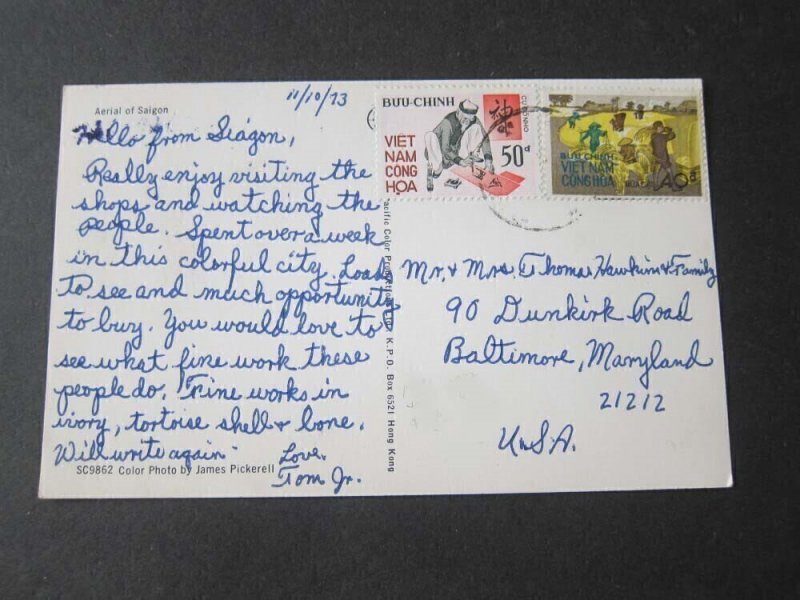 Aerial of Saigon
11/10/73
Hello from Siagon,
Really enjoy visiting the
shops and watching the
people. Spent over a week
in this colorful city. Loads
to see and much opportunity
to buy. You would love to
see what fine work these
people do. Fine works in
ivory, tortoise shell + bone.
Will write again.
Love,
Tom Jr.
SC9862 Color Photo by James Pickerell
K.P.O. Box 6521 Hong Kong
BƯU-CHINH
VIỆT
NAM
CỘNG
HÒA
50đ
BƯU CHINH
VIỆT NAM
CỘNG HÒA
Mr. + Mrs. Thomas Hawkins + Family
90 Dunkirk Road
Baltimore, Maryland
21212
U.S.A.